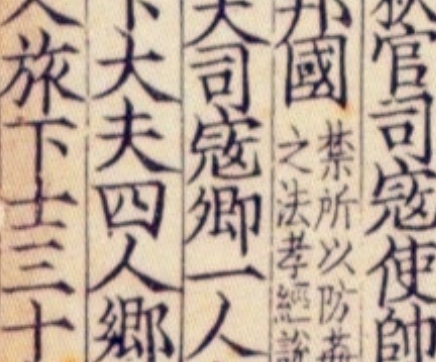 秋官司寇使帥
邦國
禁所以防姦
之法孝經說
大司寇卿一人
下大夫四人鄉
人旅下士三十